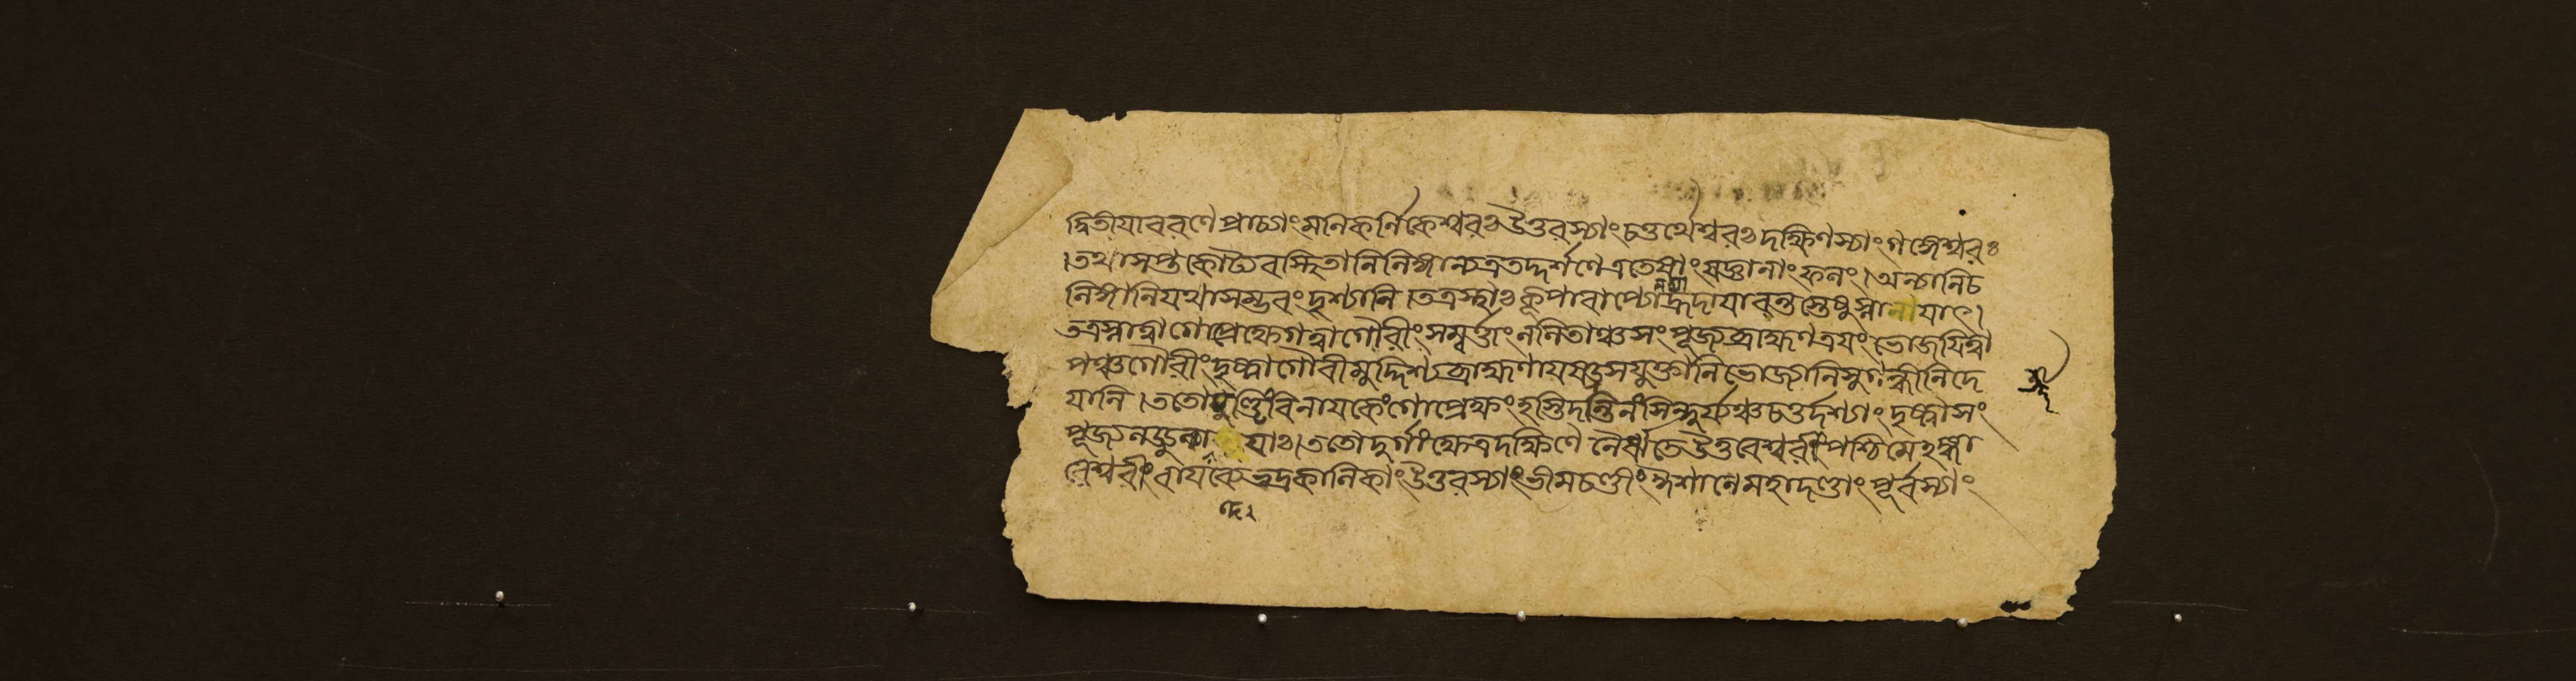 দ্বিতীযাবরণে প্রাচ্যাং মনিকর্নিকেশ্বরঃ উত্তরস্যাং চতুর্থেশ্বরঃ দক্ষিণস্যাং গঙ্গেশ্বরঃ
। তথা সপ্তকোট্যৈব স্থিতানি লিঙ্গান্যত্র তদ্দর্শণে এতেষাং যজ্ঞানাং ফলং । অন্যানি চ
লিঙ্গানি যথাসম্ভবং দৃশ্যানি । তত্রস্থাঃ কূপা বাপ্যো হ্রদা যাবন্তস্তেষু স্নায়াৎ ।
তত্র স্নাত্বা গোপ্রেক্ষে গত্বা গৌরীং সম্বর্ত্তাং ললিতাঞ্চ সংপূজ্য ব্রাহ্মণত্রযং ভোজযিত্বা
পঞ্চগৌরীং দৃষ্ট্বা গৌরীমুদ্দিশ্য ব্রাহ্মণায ষড্রসযুক্তানি ভোজ্যানি সুগন্ধীনি দে
যানি । ততো ঢুণ্ঢিং বিনাযকং গোপ্রেক্ষং হস্তিদন্তিনং সিন্দূর্য্যঞ্চ চতুর্দশ্যাং দৃষ্ট্বা সং
পূজ্য লড্ডুকা যাঃ । ততো দুর্গাং ক্ষেত্রদক্ষিণে নৈর্ঋতে উত্তরেশ্বরীং পশ্চিমেঽঙ্গা
রেশ্বরীং বাযব্যে ভদ্রকালিকাং উত্তরস্যাং ভীমচণ্ডীং ঈশানে মহাদণ্ডাং পূর্বস্যাং